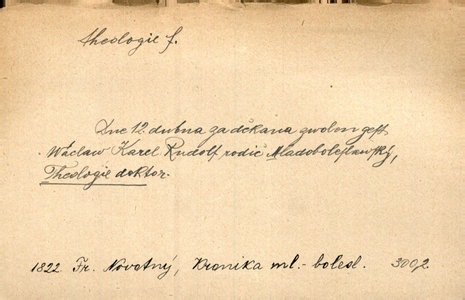 theologie f.
Dne 12. dubna za děkana zwolen gest
Wáclaw Karel Rudolf rodič Mladoboleslawský,
Theologie doktor.
1822 Fr. Novotný, Kronika ml.-bolesl. 300/2